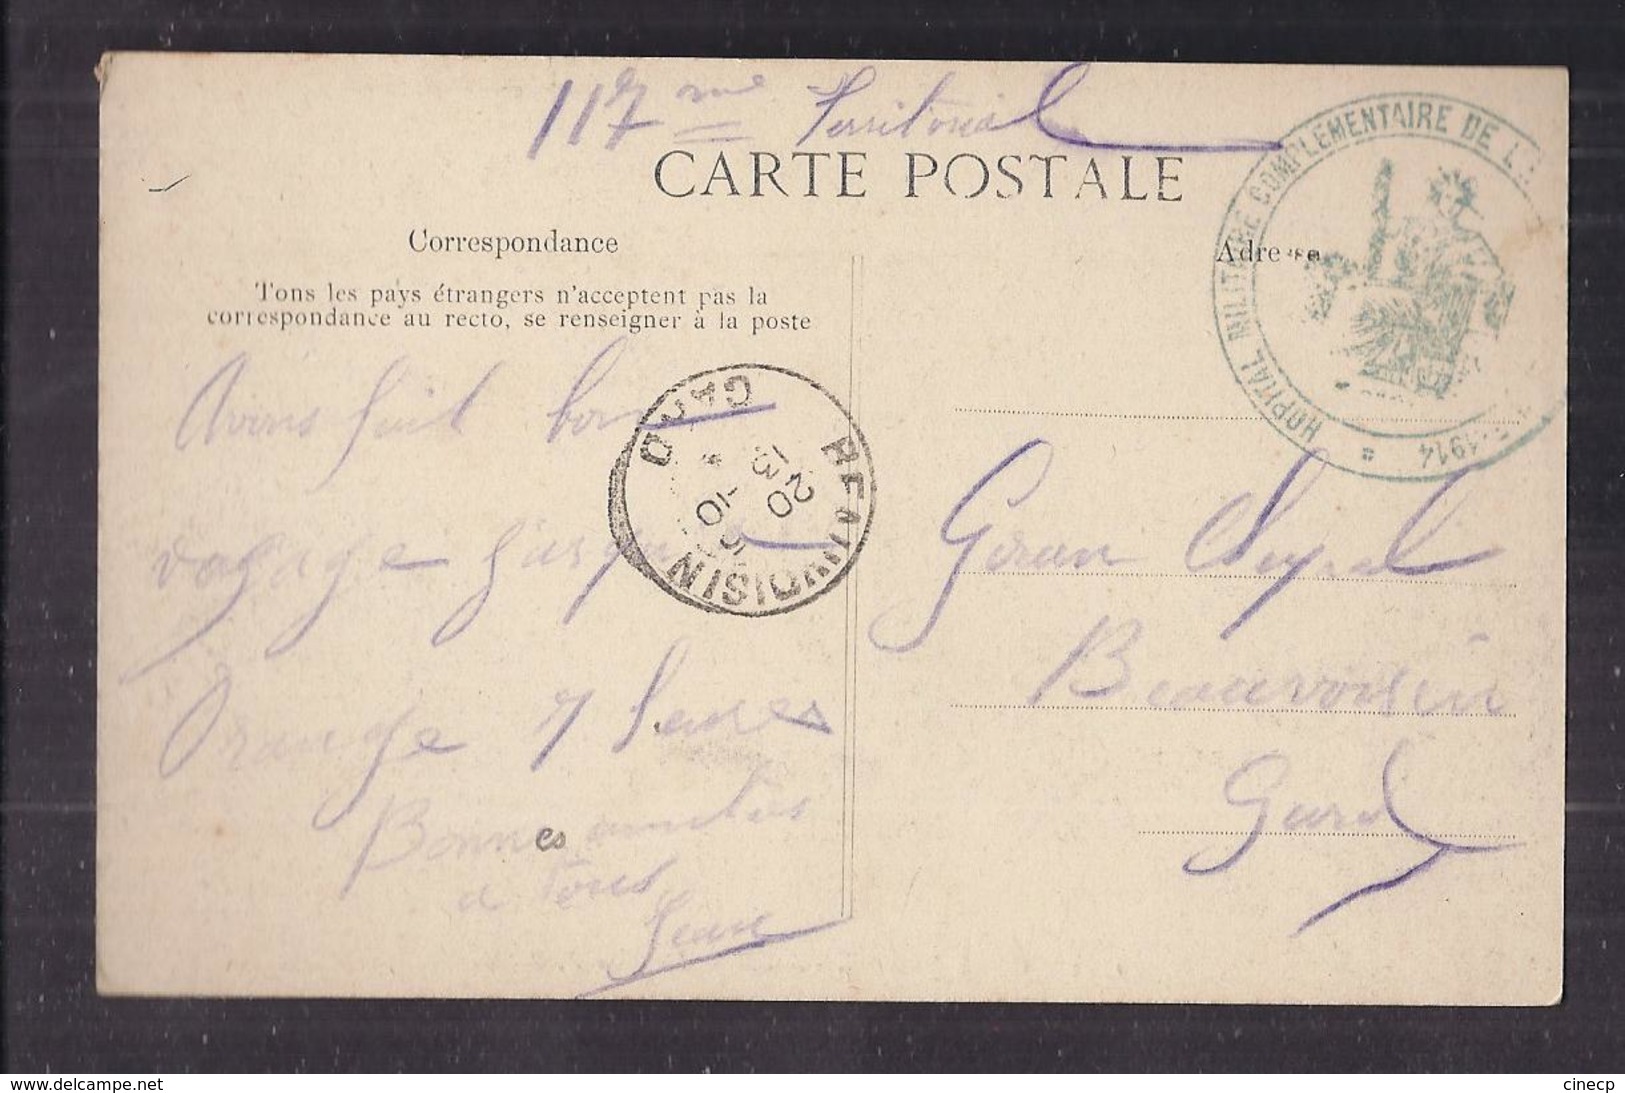 117me Territorial
CARTE POSTALE
Correspondance
Tous les pays étrangers n'acceptent pas la
correspondance au recto, se renseigner à la poste
Adresse
HOPITAL MILITAIRE COMPLEMENTAIRE DE
1914
BEAUVOISIN
GARD
20
13 -10
Avons fait bon
voyage jusqu'a
Orange 7 heures
Bonnes amitiés
a tous
Jean
Beauvoisin
Gard
www.delcampe.net
cinecp